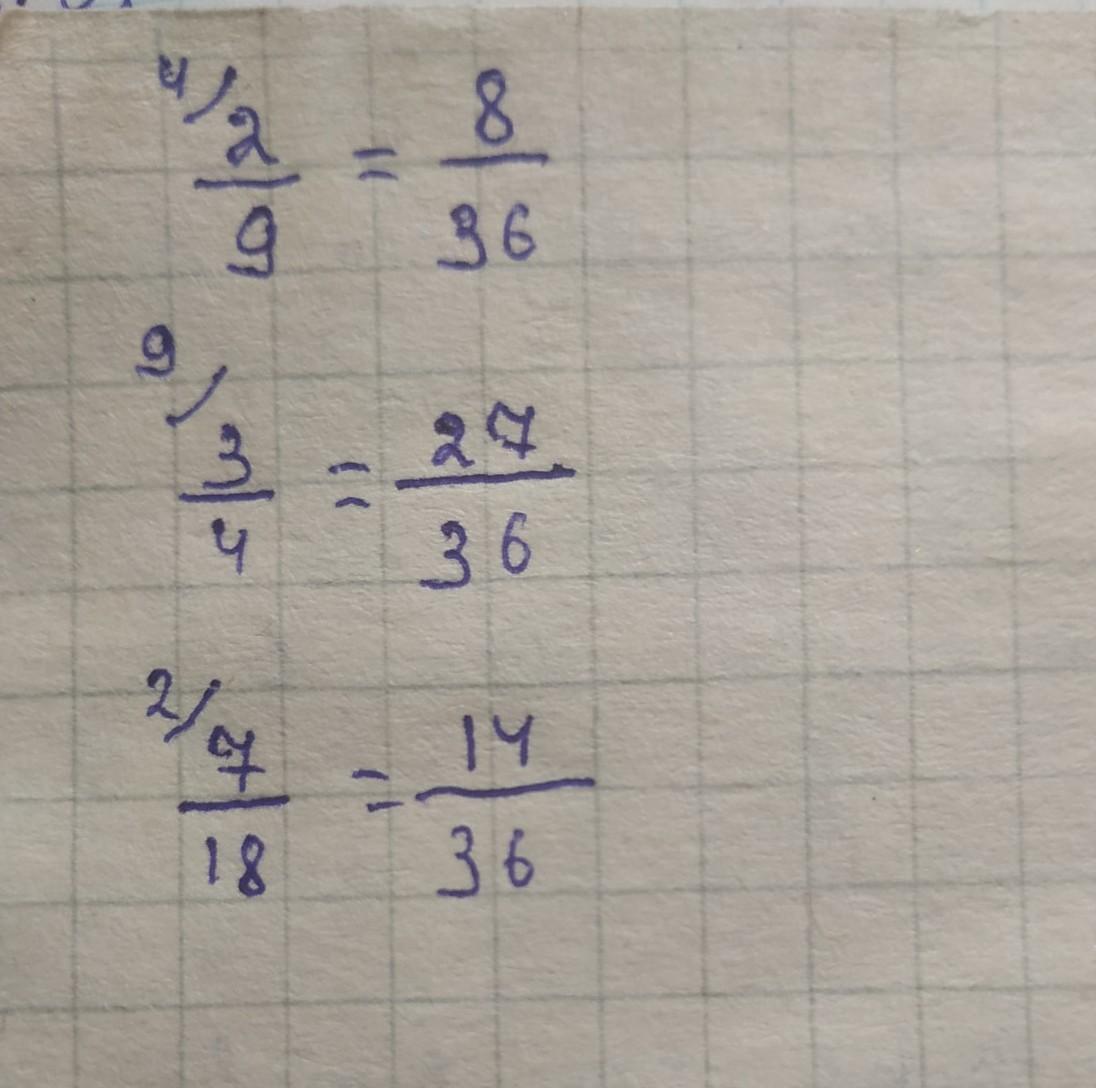 4/ 2/9 = 8/36
9/ 3/4 = 27/36
2/ 7/18 = 14/36